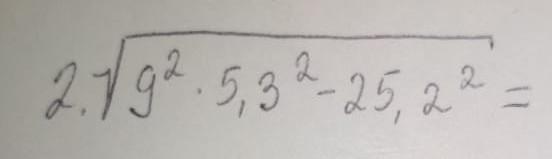 2. √9² · 5,3² - 25,2² =